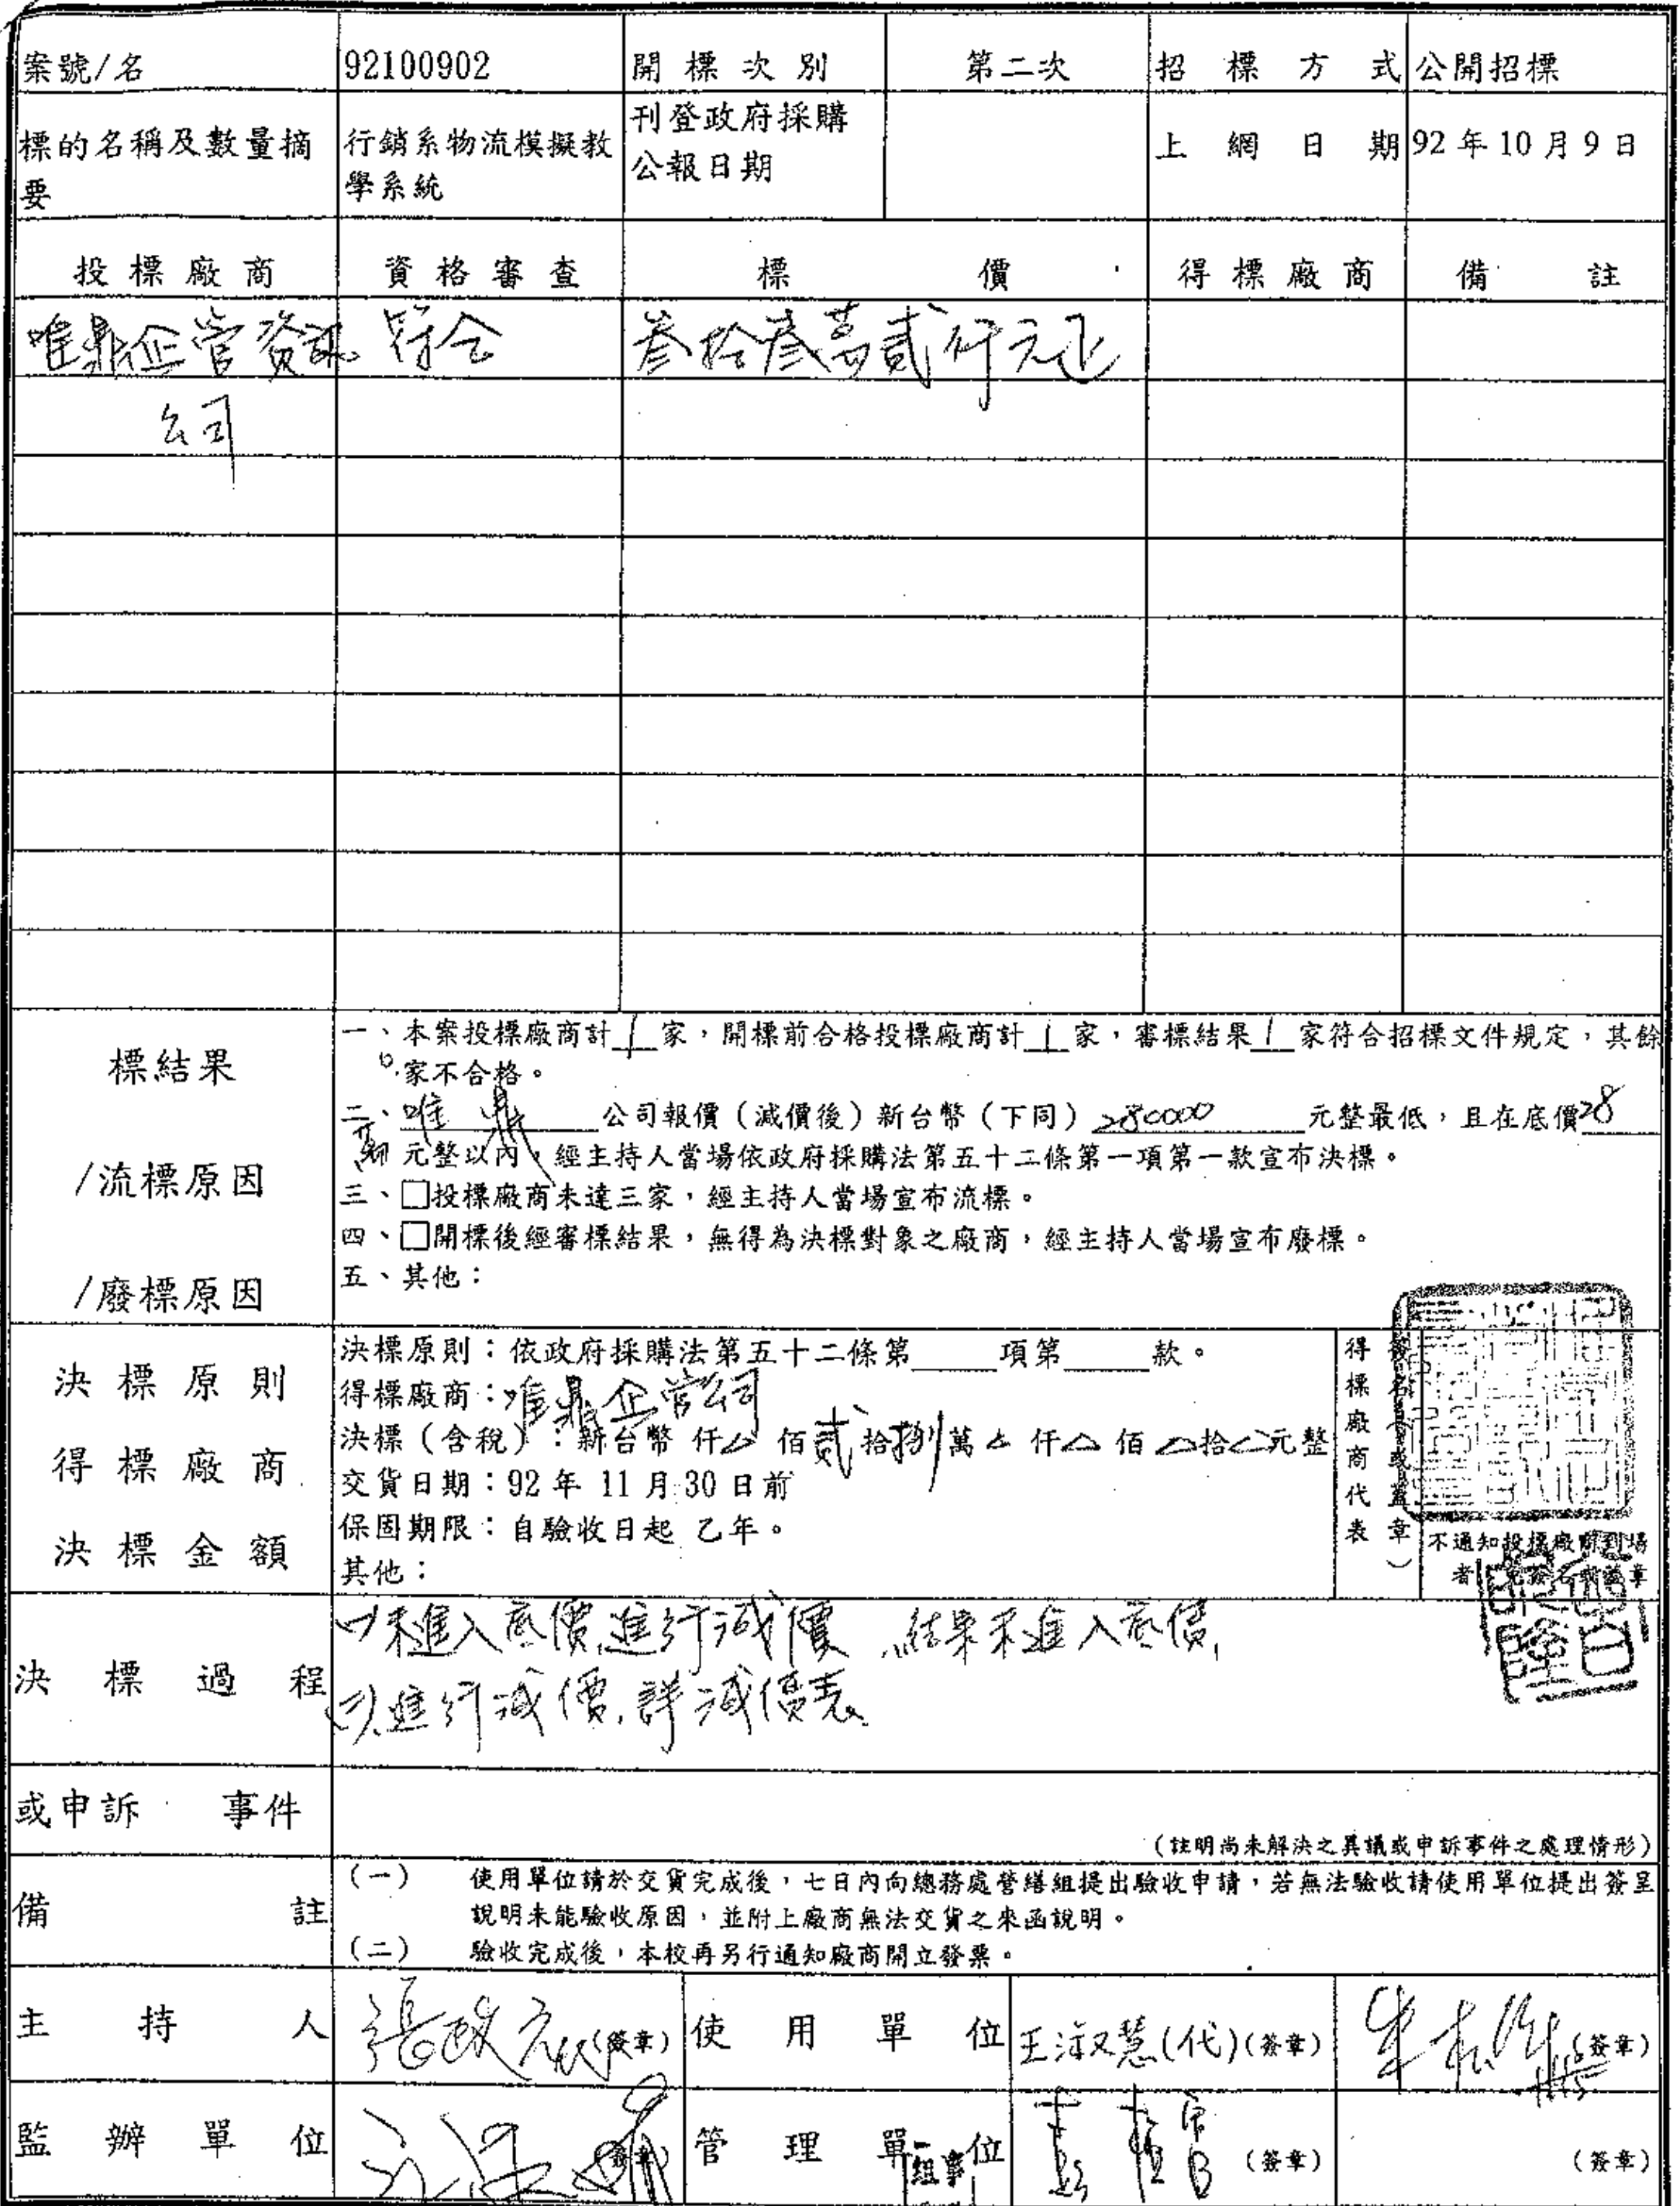 案號/名 92100902 開標次別 第二次 招標方式 公開招標
標的名稱及數量摘要 行銷系物流模擬教學系統 刊登政府採購公報日期 上網日期 92年10月9日
投標廠商 資格審查 標價 得標廠商 備註
唯鼎企管資訊公司 符合 叁拾叁萬貳仟元正
標結果
/流標原因
/廢標原因
一、本案投標廠商計 1 家,開標前合格投標廠商計 1 家,審標結果 1 家符合招標文件規定,其餘
0 家不合格。
二、唯鼎 公司報價(減價後)新台幣(下同) 280000 元整最低,且在底價 28
萬 元整以內,經主持人當場依政府採購法第五十二條第一項第一款宣布決標。
三、□投標廠商未達三家,經主持人當場宣布流標。
四、□開標後經審標結果,無得為決標對象之廠商,經主持人當場宣布廢標。
五、其他:
決標原則
得標廠商
決標金額
決標原則:依政府採購法第五十二條第 項第 款。
得標廠商:唯鼎企管公司
決標(含稅):新台幣 仟△ 佰貳拾捌萬△仟△佰△拾△元整
交貨日期:92年 11月 30日前
保固期限:自驗收日起 乙年。
其他:
得標廠商代表
簽名(或蓋章)
不通知投標廠商到場
者 免簽名或蓋章
決標過程
(1)未進入底價,進行減價,結果未進入底價,
(2)進行減價,詳減價表
或申訴 事件
(註明尚未解決之異議或申訴事件之處理情形)
備註
(一) 使用單位請於交貨完成後,七日內向總務處營繕組提出驗收申請,若無法驗收請使用單位提出簽呈
說明未能驗收原因,並附上廠商無法交貨之來函說明。
(二) 驗收完成後,本校再另行通知廠商開立發票。
主持人 (簽章) 使用單位 王淑慧(代)(簽章) (簽章)
監辦單位 (簽章) 管理單位 (簽章) (簽章)